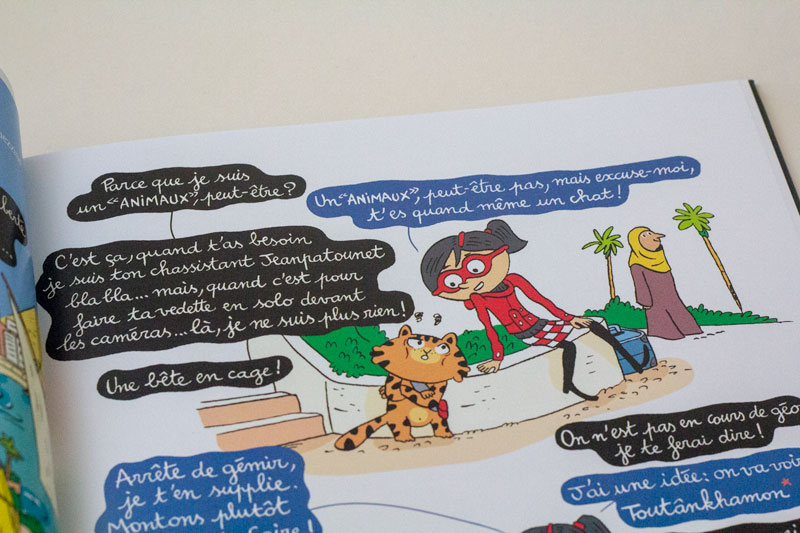 Parce que je suis
un "ANIMAUX", peut-être ?
Un "ANIMAUX", peut-être pas, mais excuse-moi,
t'es quand même un chat !
C'est ça, quand t'as besoin
je suis ton chassistant Jeanpatounet
bla bla... mais, quand c'est pour
faire ta vedette en solo devant
les caméras... là, je ne suis plus rien !
Une bête en cage !
On n'est pas en cours de géo
je te ferai dire !
Arrête de gémir,
je t'en supplie.
Montons plutôt
J'ai une idée : on va voir
Toutânkhamon*